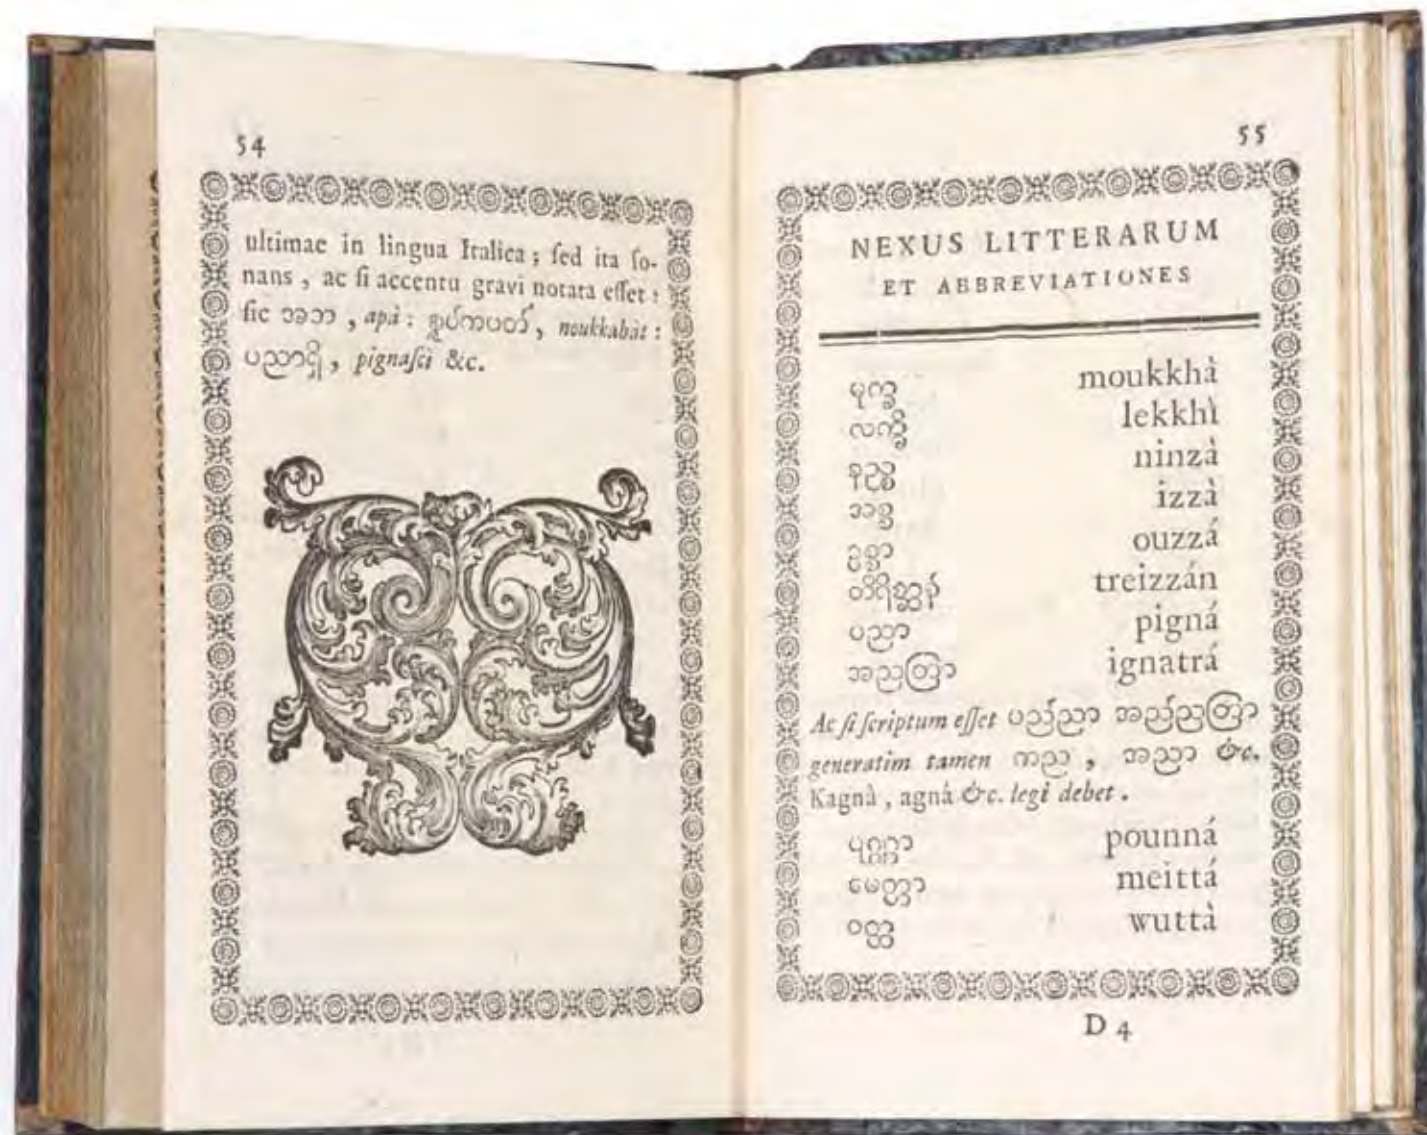 54
ultimae in lingua Italica; ſed ita ſo-
nans, ac ſi accentu gravi notata eſſet:
ſic အဘ, apà: နှုပ်ကပတ်, noukkabàt:
ပညာရှိ, pignaſci &c.
55
NEXUS LITTERARUM
ET ABBREVIATIONES
မုက္ခ moukkhà
လက္ခိ lekkhì
နည္စ ninzà
ဣစ္ဆ izzà
ဥစ္စာ ouzzá
တိရိစ္ဆာန် treizzán
ပညာ pigná
အညတြာ ignatrá
Ac ſi ſcriptum eſſet ပည်ညာ အည်ညတြာ
generatim tamen ကည, အညာ &c.
Kagnà, agná &c. legi debet.
ပုဏ္ဏာ pounná
မေတ္တာ meittá
ဝတ္ထ wuttà
D 4